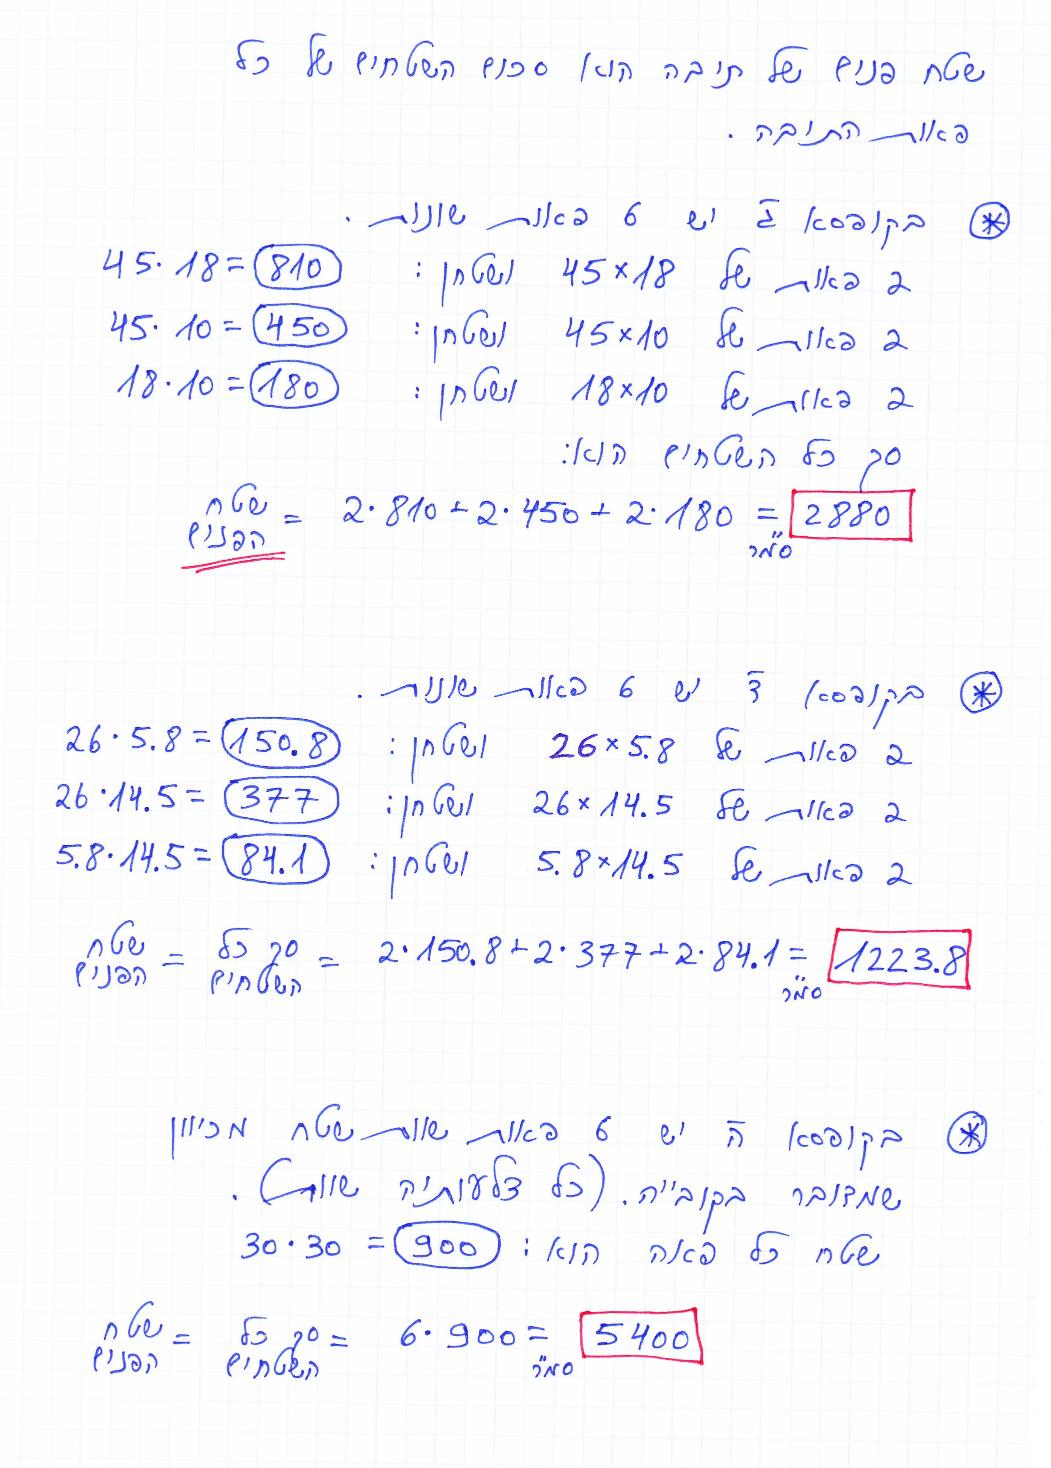 שטח פנים של תיבה הוא סכום השטחים של כל
פאות התיבה .
* בקופסא ג יש 6 פאות שונות .
2 פאות של 45×18 ושטחן : 45·18=810
2 פאות של 45×10 ושטחן : 45·10=450
2 פאות של 18×10 ושטחן : 18·10=180
סך כל השטחים הוא:
שטח הפנים = 2·810+2·450+2·180 = 2880 סמ"ר
* בקופסא ד יש 6 פאות שונות .
2 פאות של 26×5.8 ושטחן : 26·5.8=150.8
2 פאות של 26×14.5 ושטחן : 26·14.5=377
2 פאות של 5.8×14.5 ושטחן : 5.8·14.5=84.1
שטח הפנים = סך כל השטחים = 2·150.8+2·377+2·84.1= 1223.8 סמ"ר
* בקופסא ה יש 6 פאות שוות שטח מכיוון
שמדובר בקובייה. (כל צלעותיה שוות) .
שטח כל פאה הוא : 30·30 = 900
שטח הפנים = סך כל השטחים = 6·900= 5400 סמ"ר